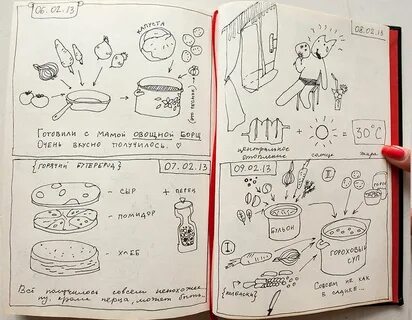 06.02.13
КАПУСТА
ГОТОВИЛИ С МАМОЙ ОВОЩНОЙ БОРЩ
ОЧЕНЬ ВКУСНО ПОЛУЧИЛОСЬ.
{ГОРЯЧИЙ БУТЕРБРОД}
07.02.13
СЫР
+ ПЕРЕЦ
ПОМИДОР
ХЛЕБ
ВСЁ ПОЛУЧИЛОСЬ СОВСЕМ НЕПОХОЖЕ
НУ, КРОМЕ ПЕРЦА, МОЖЕТ БЫТЬ.
08.02.13
+
=
30°C
ЦЕНТРАЛЬНОЕ
ОТОПЛЕНИЕ
СОЛНЦЕ
ЖАРА
09.02.13
II
БУЛЬОН
I
ГОРОХОВЫЙ
СУП
СОВСЕМ НЕ КАК
В САДИКЕ...